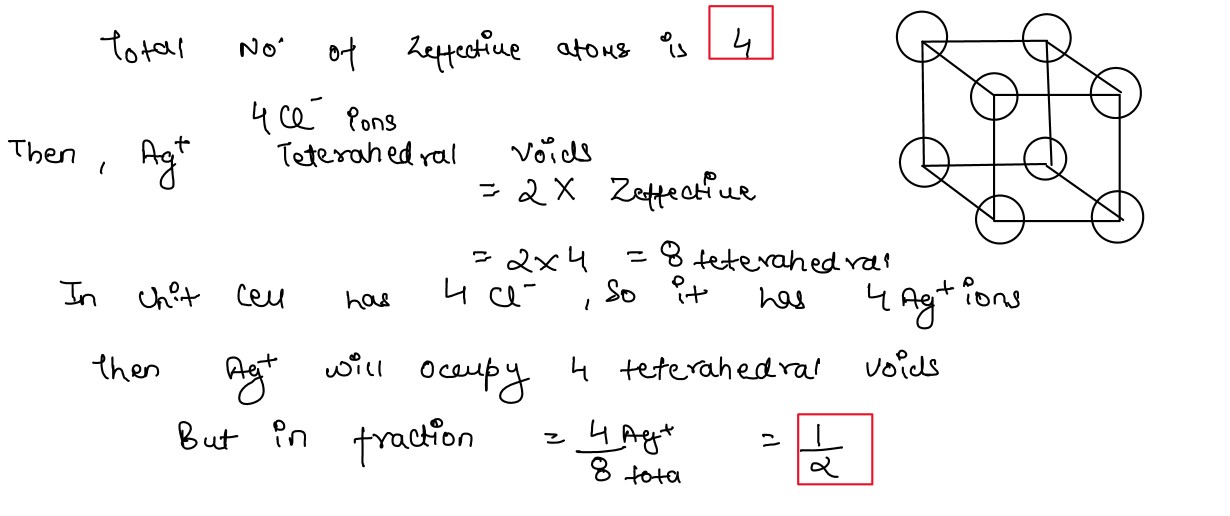 Total No. of Zeffective atoms is 4
4 Cl⁻ ions
Then, Ag⁺ Teterahedral voids
= 2 X Zeffective
= 2x4 = 8 teterahedral
In Unit Cell has 4 Cl⁻, So it has 4 Ag⁺ ions
then Ag⁺ will occupy 4 teterahedral voids
But in fraction = 4 Ag⁺ / 8 tota = 1/2